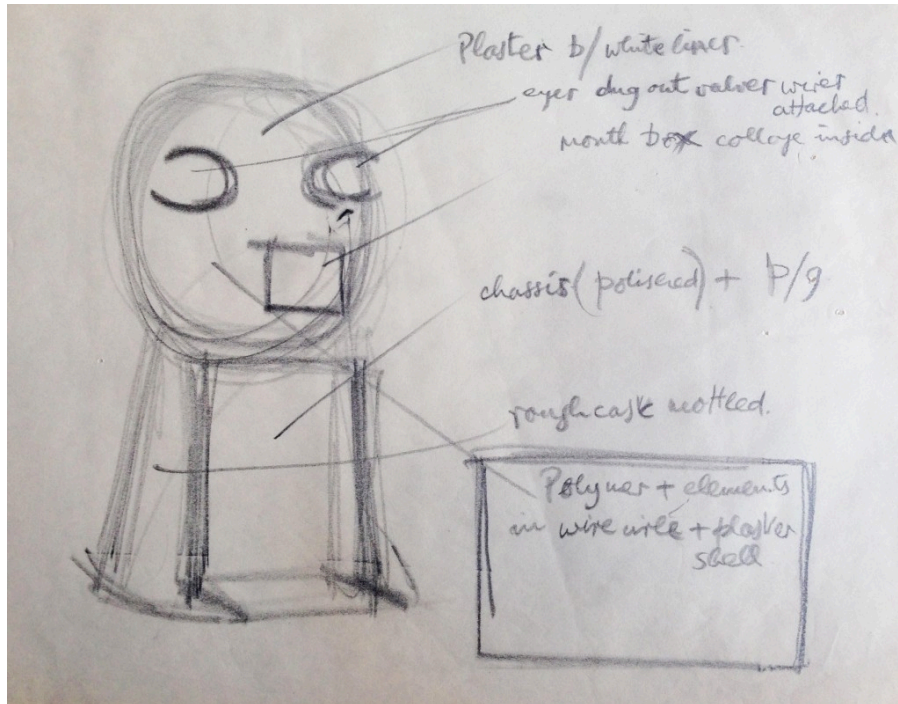 Plaster b/white liner
eyes dug out valves wires
attached.
mouth box collage inside
chassis (polisered) + p/g
rough cask mottled.
Polymer + elements
in wire + plaster
shell